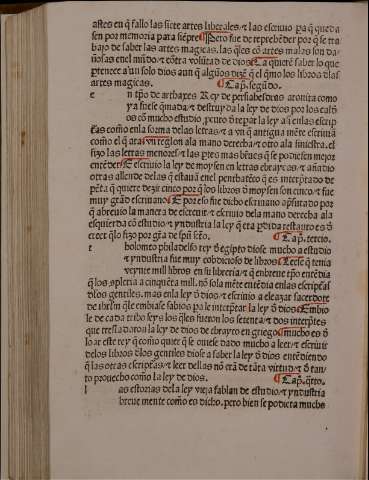 astes en q̃ fallo las siete artes liberales. ⁊ las escriuio pa q̃ queda
sen por memoria para siẽpre ¶ Pero fue de reprehẽder por q̃ se tra
bajo de saber las artes magicas. las q̃les cõ artes malas son da
ñosas en el mũdo. ⁊ cõtra volũtad de dios ¶ Ca quierẽ saber lo que
ptenece a vn solo dios aun q̃ algũos dizẽ q̃ el q̃mo los libros dlas
artes magicas. ¶ Cap̃. segũdo.
e n tp̃o de arthaxes Rey de persia esdras
ya fuese q̃mada. ⁊ destruyda la ley de dios por los
os cõ mucho estudio. pcuro de repar la ley asi en las escrip
turas como en la forma de las letras. ⁊ a vn q̃ antigua mẽte escriuiã
como el q̃ ara vn reglon ala mano derecha. ⁊ otro ala siniestra. el
fizo las letras menores. ⁊ las ptes mas bẽues q̃ se podiesen mejor
entẽder ¶ E escriuio la ley de moysen en letras ebraycas. ⁊ añadio
otras allende de las q̃ estauã en el penthatẽco q̃ es interp̃tado de
q̃ quiere dezir cinco por q̃ los libros d̃ moysen son cinco. ⁊ fue
muy grãd escriuano ¶ E por eso fue dicho escriuano ap̃surado por
q̃ abreuio la manera de escreuir. ⁊ escriuio dela mano derecha ala
esquierda cõ estudio. ⁊ yndustria la ley q̃ era pdida restauro es d̃
creer q̃ lo fizo por grã de spũ sc̃o. ¶ Cap̃. tercio.
t holomeo philadelfo rey d̃ egipto diose mucho a estudio
⁊ yndustria fue muy cobdicioso de libros ¶ E ese q̃ tenia
veynte mill libros en su libreria. ⁊ q̃ en breue tp̃o entẽdia
q̃ los a cinquẽta mill. nõ sola mẽte entẽdia en las escripturas
dlos gentiles. mas en la ley d̃ dios. ⁊ escriuio a eleazar sacerdote
de ihrlm q̃ le embiase sabios pa le interp̃tar la ley d̃ dios ¶ Embio
le de cada tribo leys los q̃les fueron los setenta. ⁊ dos interp̃tes
que trasladaron la ley de dios de ebrayco en griego ¶ mucho es d̃
loar este rey q̃ como quier q̃ se ouiese dado mucho a leer. ⁊ escriuir
delos libros dlos gentiles diose a saber la ley d̃ dios entẽdiendo
q̃ las otras escripturas. ⁊ leer dellas nõ erã de tãta virtud. ⁊ d̃ tan
to prouecho como la ley de dios. ¶ Cap̃. q̃rto.
l as estorias dela ley vieja fablan de estudio. ⁊ yndustria
breue mente como es dicho. pero bien se podiera mucho